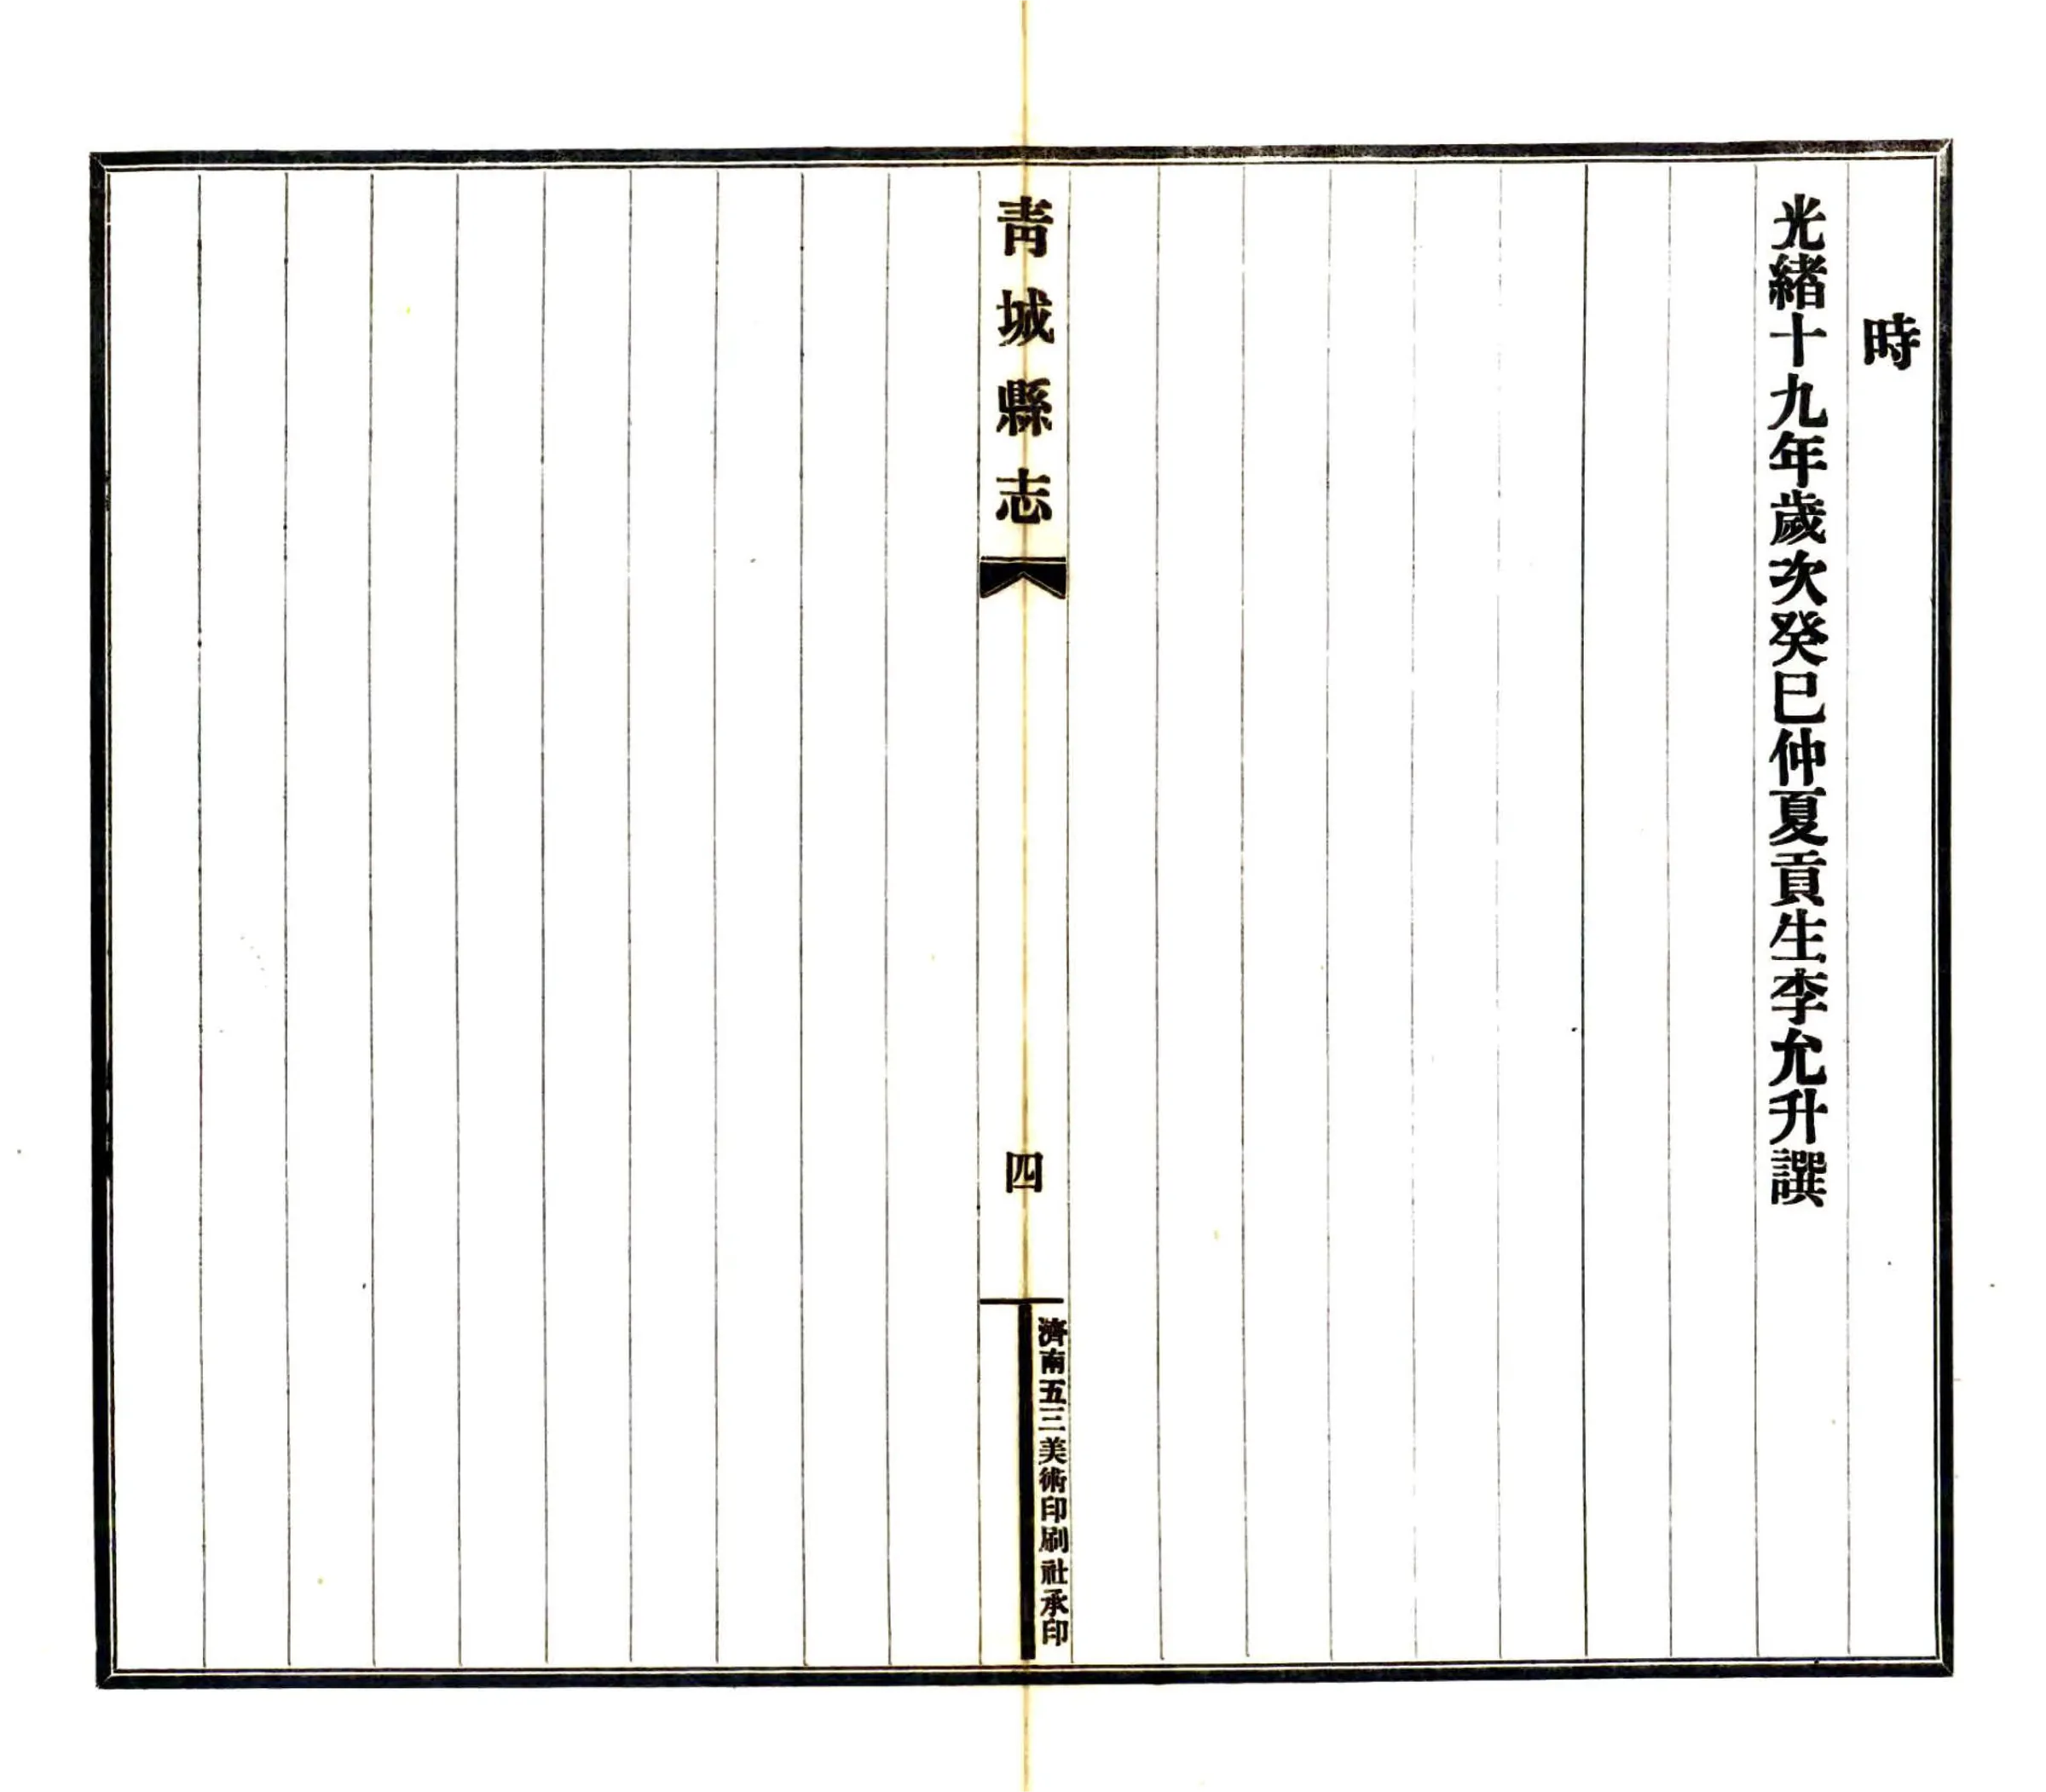 時
光緒十九年歲次癸巳仲夏貢生李允升譔
靑城縣志
四
濟南五三美術印刷社承印